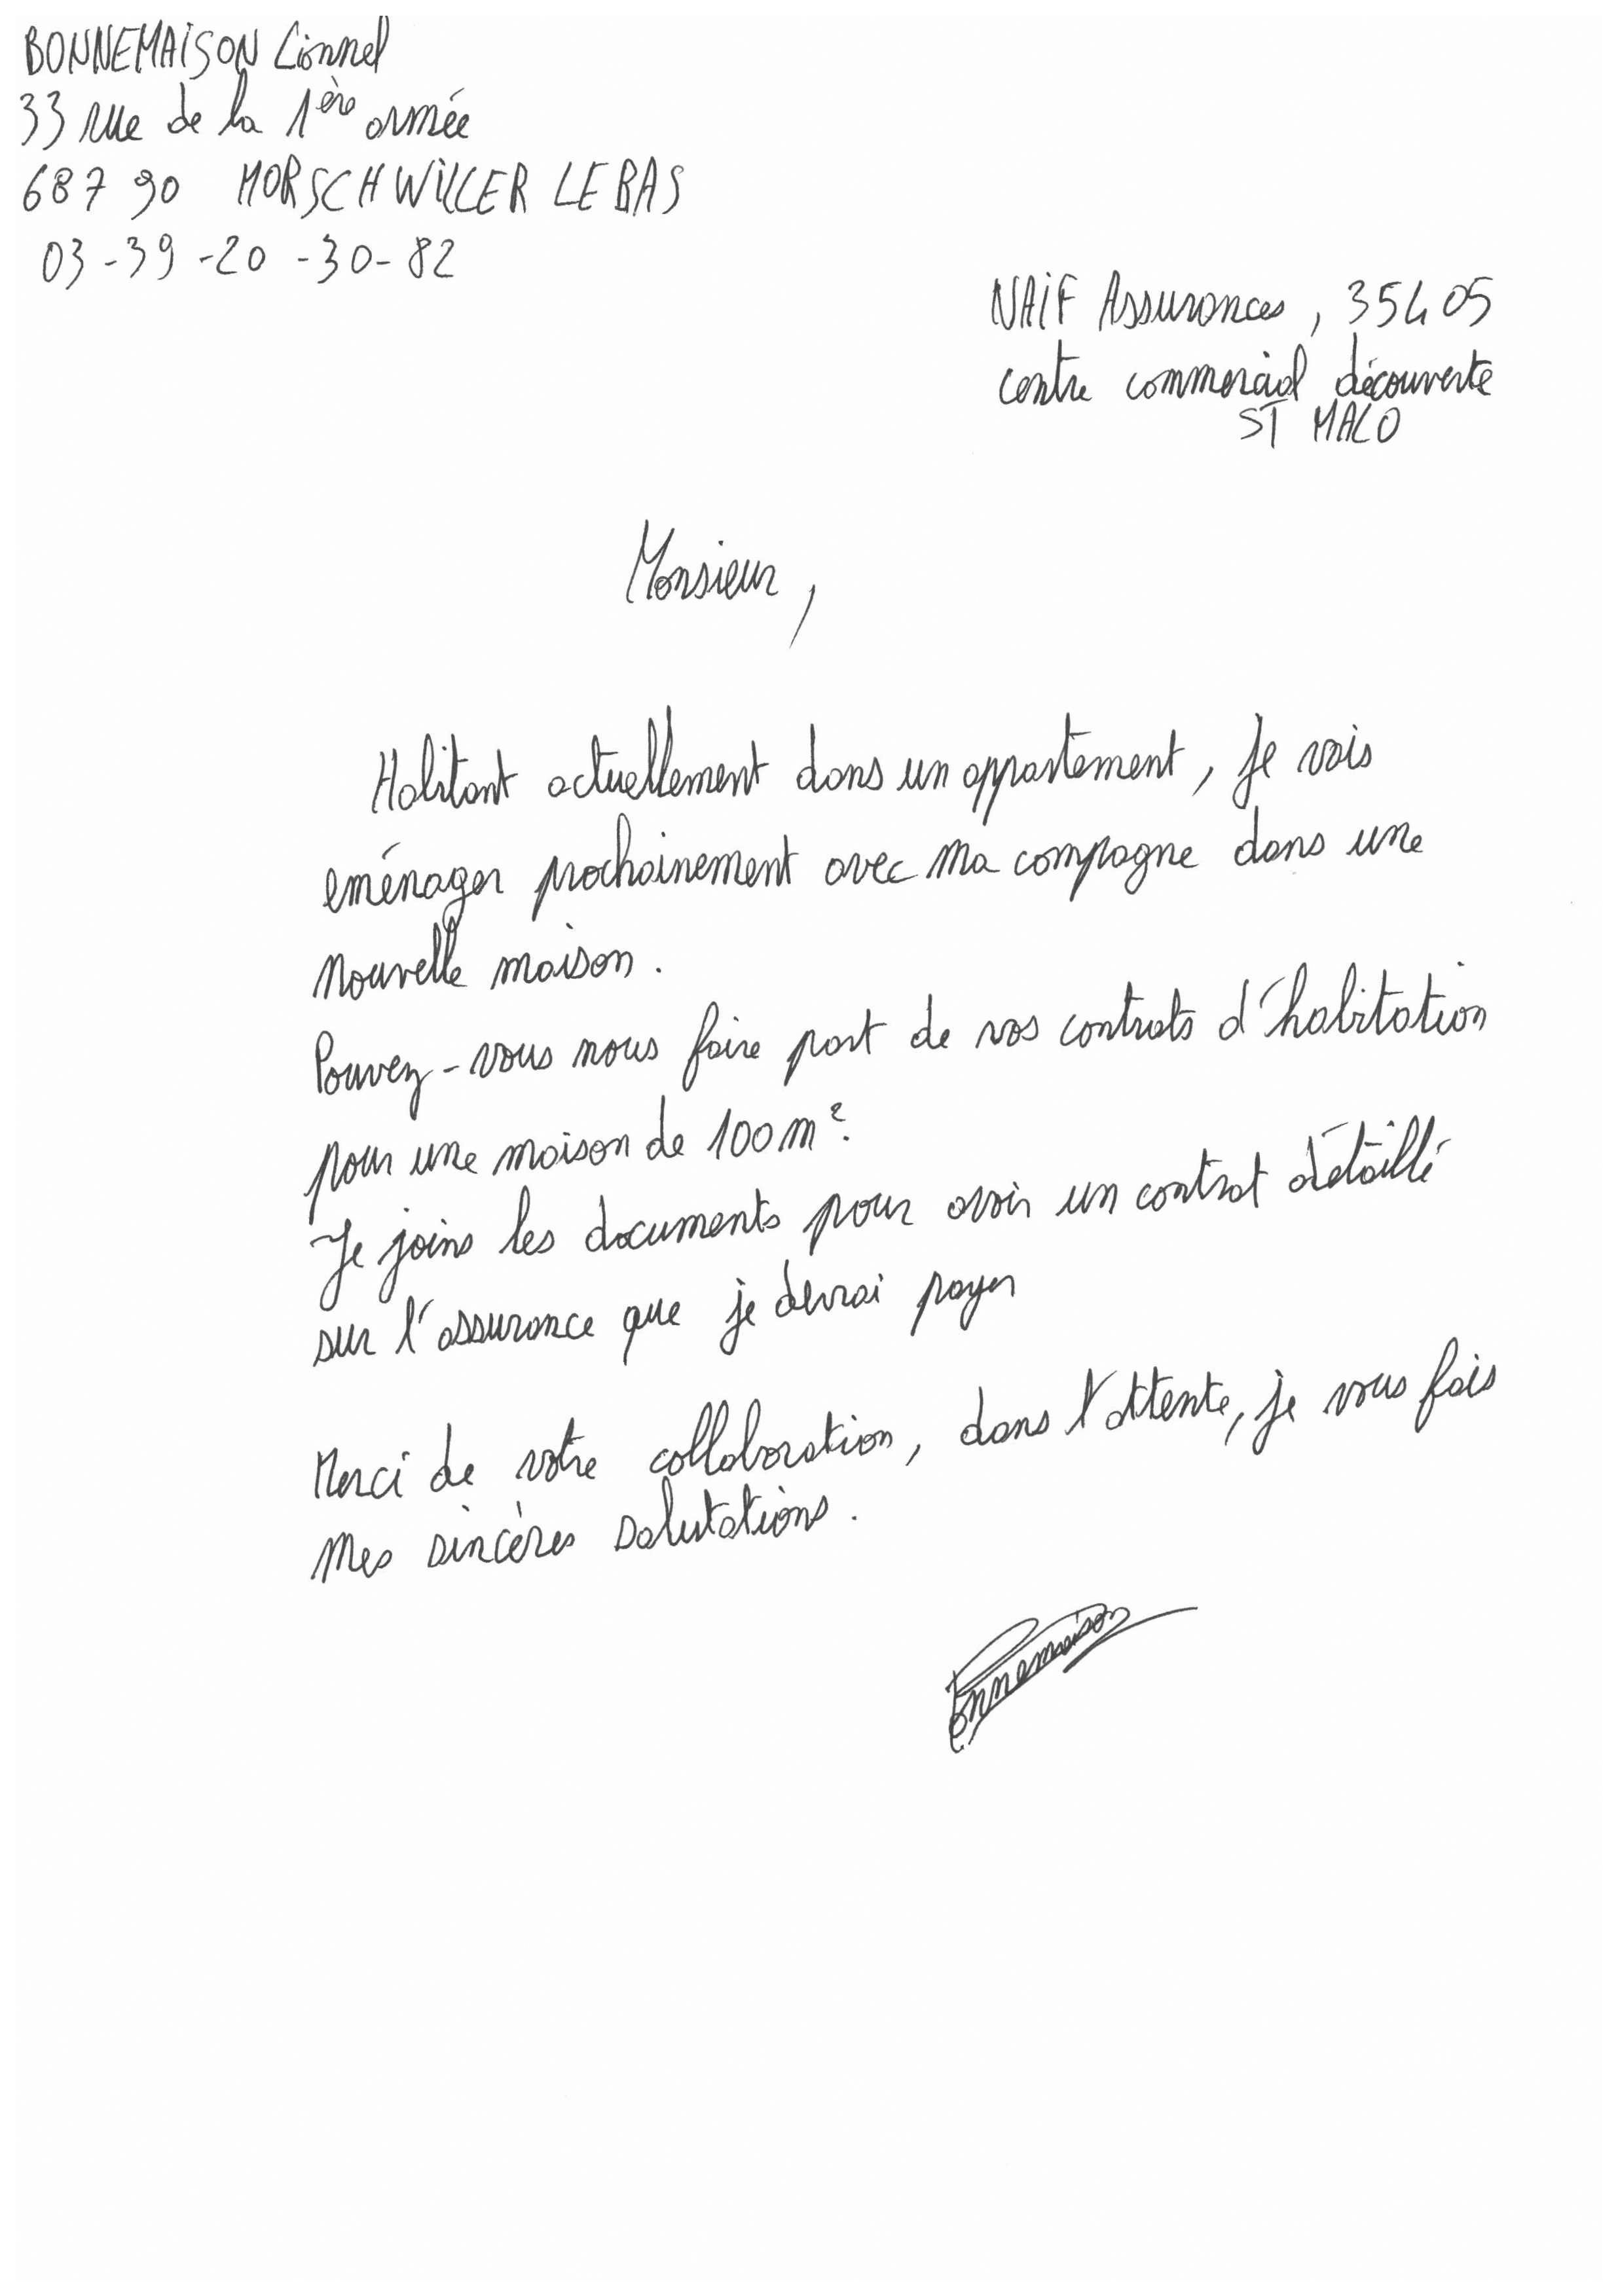 BONNEMAISON Lionnel
33 rue de la 1ère armée
687 90 MORSCHWILLER LE BAS
03-39-20-30-82
NAIF Assurances, 35405
centre commercial découverte
ST MALO
Monsieur,
Habitant actuellement dans un appartement, je vais
eménager prochainement avec ma compagne dans une
nouvelle maison.
Pouvez-vous nous faire part de vos contrats d'habitation
pour une maison de 100m².
Je joins les documents pour avoir un contrat détaillé
sur l'assurance que je devrai payer
Merci de votre collaboration, dans l'attente, je vous fais
mes sincères salutations.
Bonnemaison